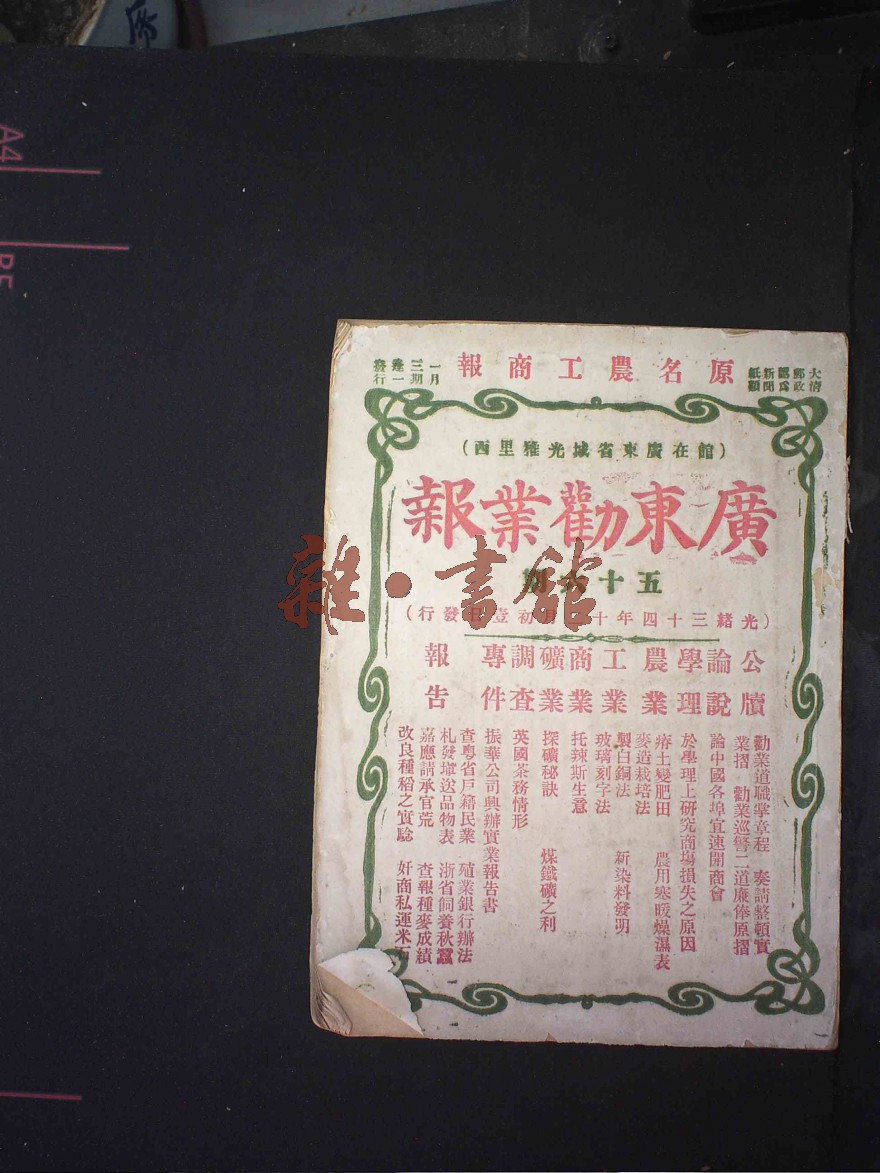 大清郵政認爲新聞紙類
原名農工商報
一月三期逢一發行
(館在廣東省城光雅里西)
廣東勸業報
五十六期
(光緒三十四年十月初壹日發行)
公牘
論說
學理
農業
工業
商業
礦業
調查
專件
報告
勸業道職掌章程 奏請整頓實
業摺 勸業巡警二道廉俸原摺
論中國各埠宜速開商會
於學理上研究商塲損失之原因
瘠土變肥田 農用寒暖燥濕表
麥造栽培法
製白銅法 新染料發明
玻璃刻字法
托辣斯生意
探礦秘訣 煤鐵礦之利
英國茶務情形
振華公司興辦實業報告書
查粵省戶籍民業 殖業銀行辦法
札發墠送品物表 浙省飼養秋蠶
嘉應請承官荒 查報種麥成績
改良種稻之實騐 奸商私運米石
雜·書館
A4
B5